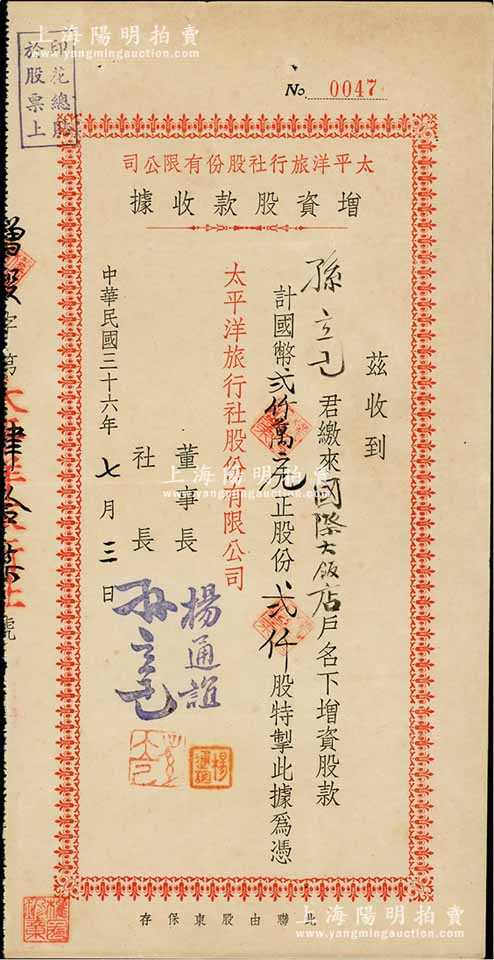 上海陽明拍賣
www.yangmingauction.com
印花總貼
於股票上
No 0047
太平洋旅行社股份有限公司
增資股款收據
茲收到
孫立己君繳來國際大飯店戶名下增資股款
計國幣弍仟萬元正股份弍仟股特掣此據爲憑
太平洋旅行社股份有限公司
董事長 楊通誼
社長 孫立己
中華民國三十六年七月三日
增股字第 肆拾柒號
上海陽明拍賣
www.yangmingauction.com
此聯由股東保存
上海陽明拍賣
www.yangmingauction.com